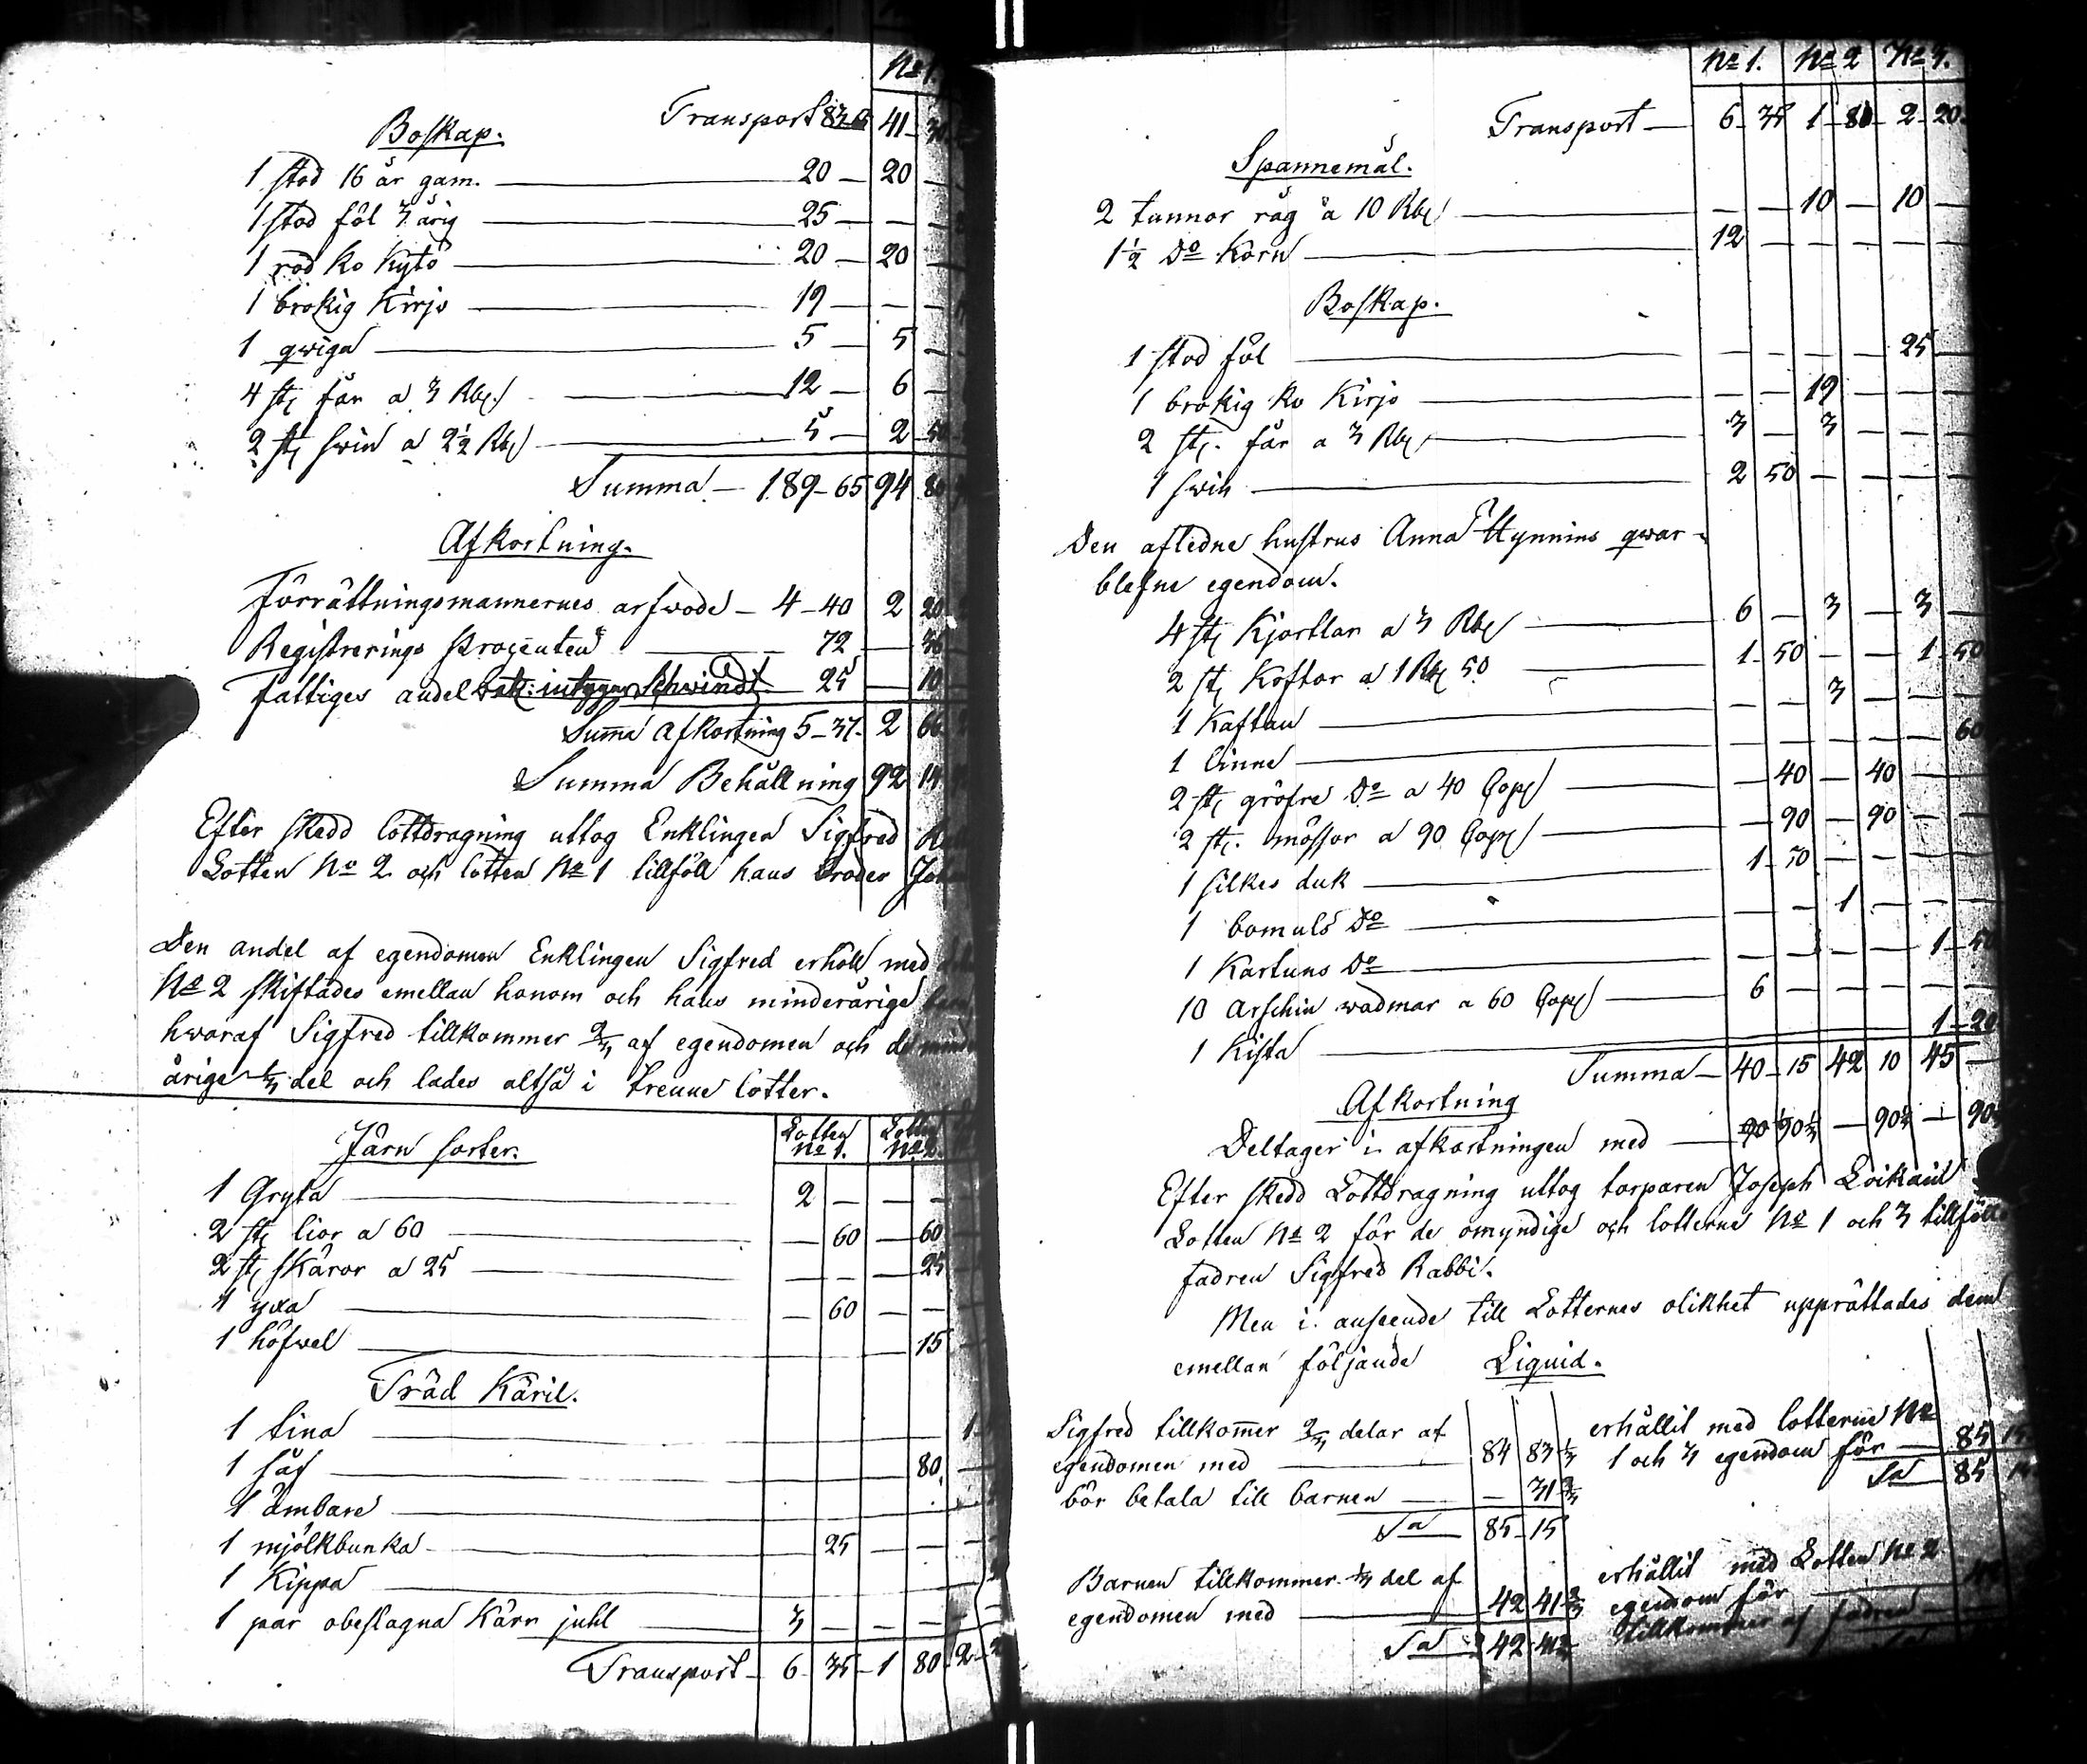 No 1.
Transport 83 41
Boskap.
1 stod 16 år gam. 20 — 20 —
1 stod föl 3 årig 25 — — —
1 röd ko Kytö 20 — 20 —
1 brokig Kirjo 19 — — —
1 qwiga 5 — 5 —
4 st. får a 3 Rbl. 12 — 6 —
2 st. swin a 2½ Rbl 5 — 2 50
Summa — 189 — 65 94
Afkortning.
Förrättningsmannernes arfwode — 4 — 40 2 20
Registrerings procenten 72 —
Fattiges andel 25 — 10
Summa afkortning 5 — 37 2
Summa Behållning 92
Efter skedd lottdragning uttog Enklingen Sigfred
Lotten No 2 och lotten No 1 tillföll hans broder
Den andel af egendomen Enklingen Sigfred erhöll med
No 2 skiftades emellan honom och hans minderårige
hwaraf Sigfred tillkommer 2/3 af egendomen och de
årige 1/3 del och lades altså i trenne lotter.
Järn sorter. Lotten No 1. Lotten No 2.
1 Gryta 2 — — —
2 st. lior a 60 — 60 — 60
2 st. skäror a 25 — — — 25
1 yxa — 60 — —
1 höfwel 15
Träd Käril.
1 tina 1
1 så 80
1 ämbare
1 mjölkbunka 25 — —
1 Kippa
1 par obeslagna Kärr juhl 3 — — —
Transport — 6 — 35 — 1 80 — 2
No 1. No 2 No 3.
Transport — 6 — 35 1 — 80 — 2 — 20
Spannemål.
2 tunnor råg a 10 Rbl — — 10 — 10 —
1½ Do Korn 12 — — — — —
Boskap.
1 stod föl — — — — 25 —
1 brokig ko Kirjo — — 19 — — —
2 st. får a 3 Rbl 3 — 3 — — —
1 swin 2 50 — — — —
Den aflidne hustrus Anna Hynnins qwar-
blefne egendom.
4 st. Kjortlar a 3 Rbl 6 — 3 — 3 —
2 st. Koftor a 1 Rbl 50 1 — 50 — — 1 — 50
1 Kaftan — — 3 — — —
1 linne — — — — — 60
2 st. gröfre Do a 40 Cop — 40 — 40 — —
2 st. mössor a 90 Cop — 90 — 90 — —
1 silkes duk 1 — 50 — — — —
1 bomuls Do — — 1 — — —
1 Kartuns Do — — — — 1 — 50
10 Arschin wadmar a 60 Cop 6 — — — — —
1 Kista 1 — 20
Summa — 40 — 15 42 10 45 —
Afkortning
Deltager i afkortningen med — 90⅓ — 90⅓ — 90
Efter skedd Lottdragning uttog torparen Joseph Loikain
Lotten No 2 för de omyndige och lotterne No 1 och 3 tillföllo
fadren Sigfred Rabbi.
Men i anseende till Lotternes olikhet upprättades dem
emellan följande Liquid.
Sigfred tillkommer 2/3 delar af
egendomen med 84 83⅓
bör betala till barnen — 31⅔
Sa 85 — 15
erhållit med lotterne No
1 och 3 egendom för — 85 15
Sa 85
Barnen tillkommer 1/3 del af
egendomen med 42 41⅔
Sa 42 41⅔
erhållit med Lotten No 2
egendom för
tillkommer af fadren